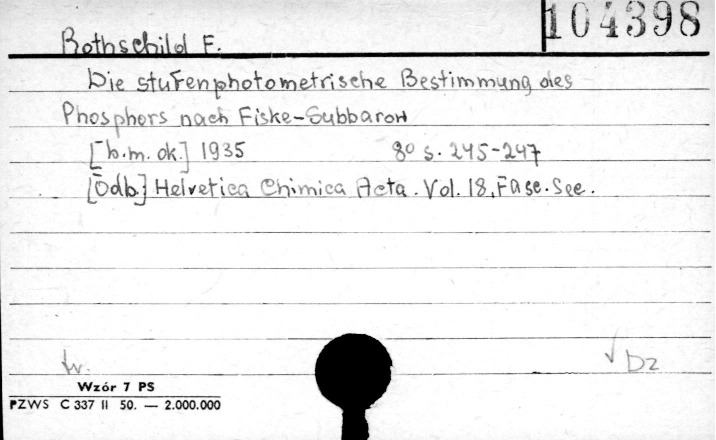 104398
Rothschild F.
Die stufenphotometrische Bestimmung des
Phosphors nach Fiske-Subbarow
[b.m.ok.] 1935 8° s. 245-247
[Odb.] Helvetica Chimica Acta. Vol. 18, Fasc. Sec.
Dz
Wzór 7 PS
PZWS C 337 II 50. — 2.000.000